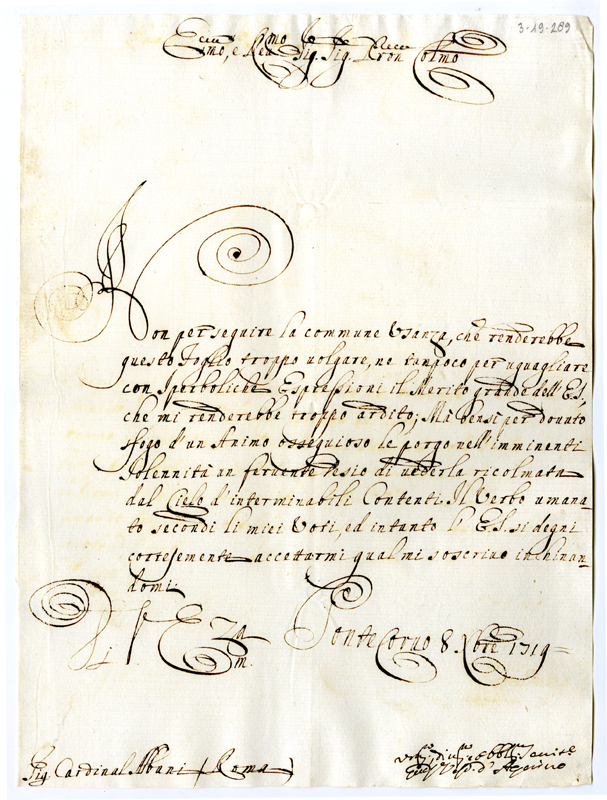 3-19-289
Ecc.mo, e Rev.mo Sig. Sig. Pron Col.mo
Non per seguire la commune Usanza, che renderebbe
questo Foglio troppo volgare, ne tampoco per uguagliare
con Iperboliche Espressioni il Merito grande dell' E.S.,
che mi renderebbe troppo ardito; Mà bensi per dovuto
sfogo d'un Animo ossequioso le porgo nell'imminenti
Solennità un fervente desio di vederla ricolmata
dal Cielo d'interminabili Contenti. Il Verbo umana-
to secondi li miei Voti, ed intanto l' E.S. si degni
cortesemente accettarmi qual mi soscrivo inchinan-
domi
Di V. E.za
Ponte Corvo 8. Xbre 1719=
Sig. Cardinal Albani (Roma)
d'Aquino